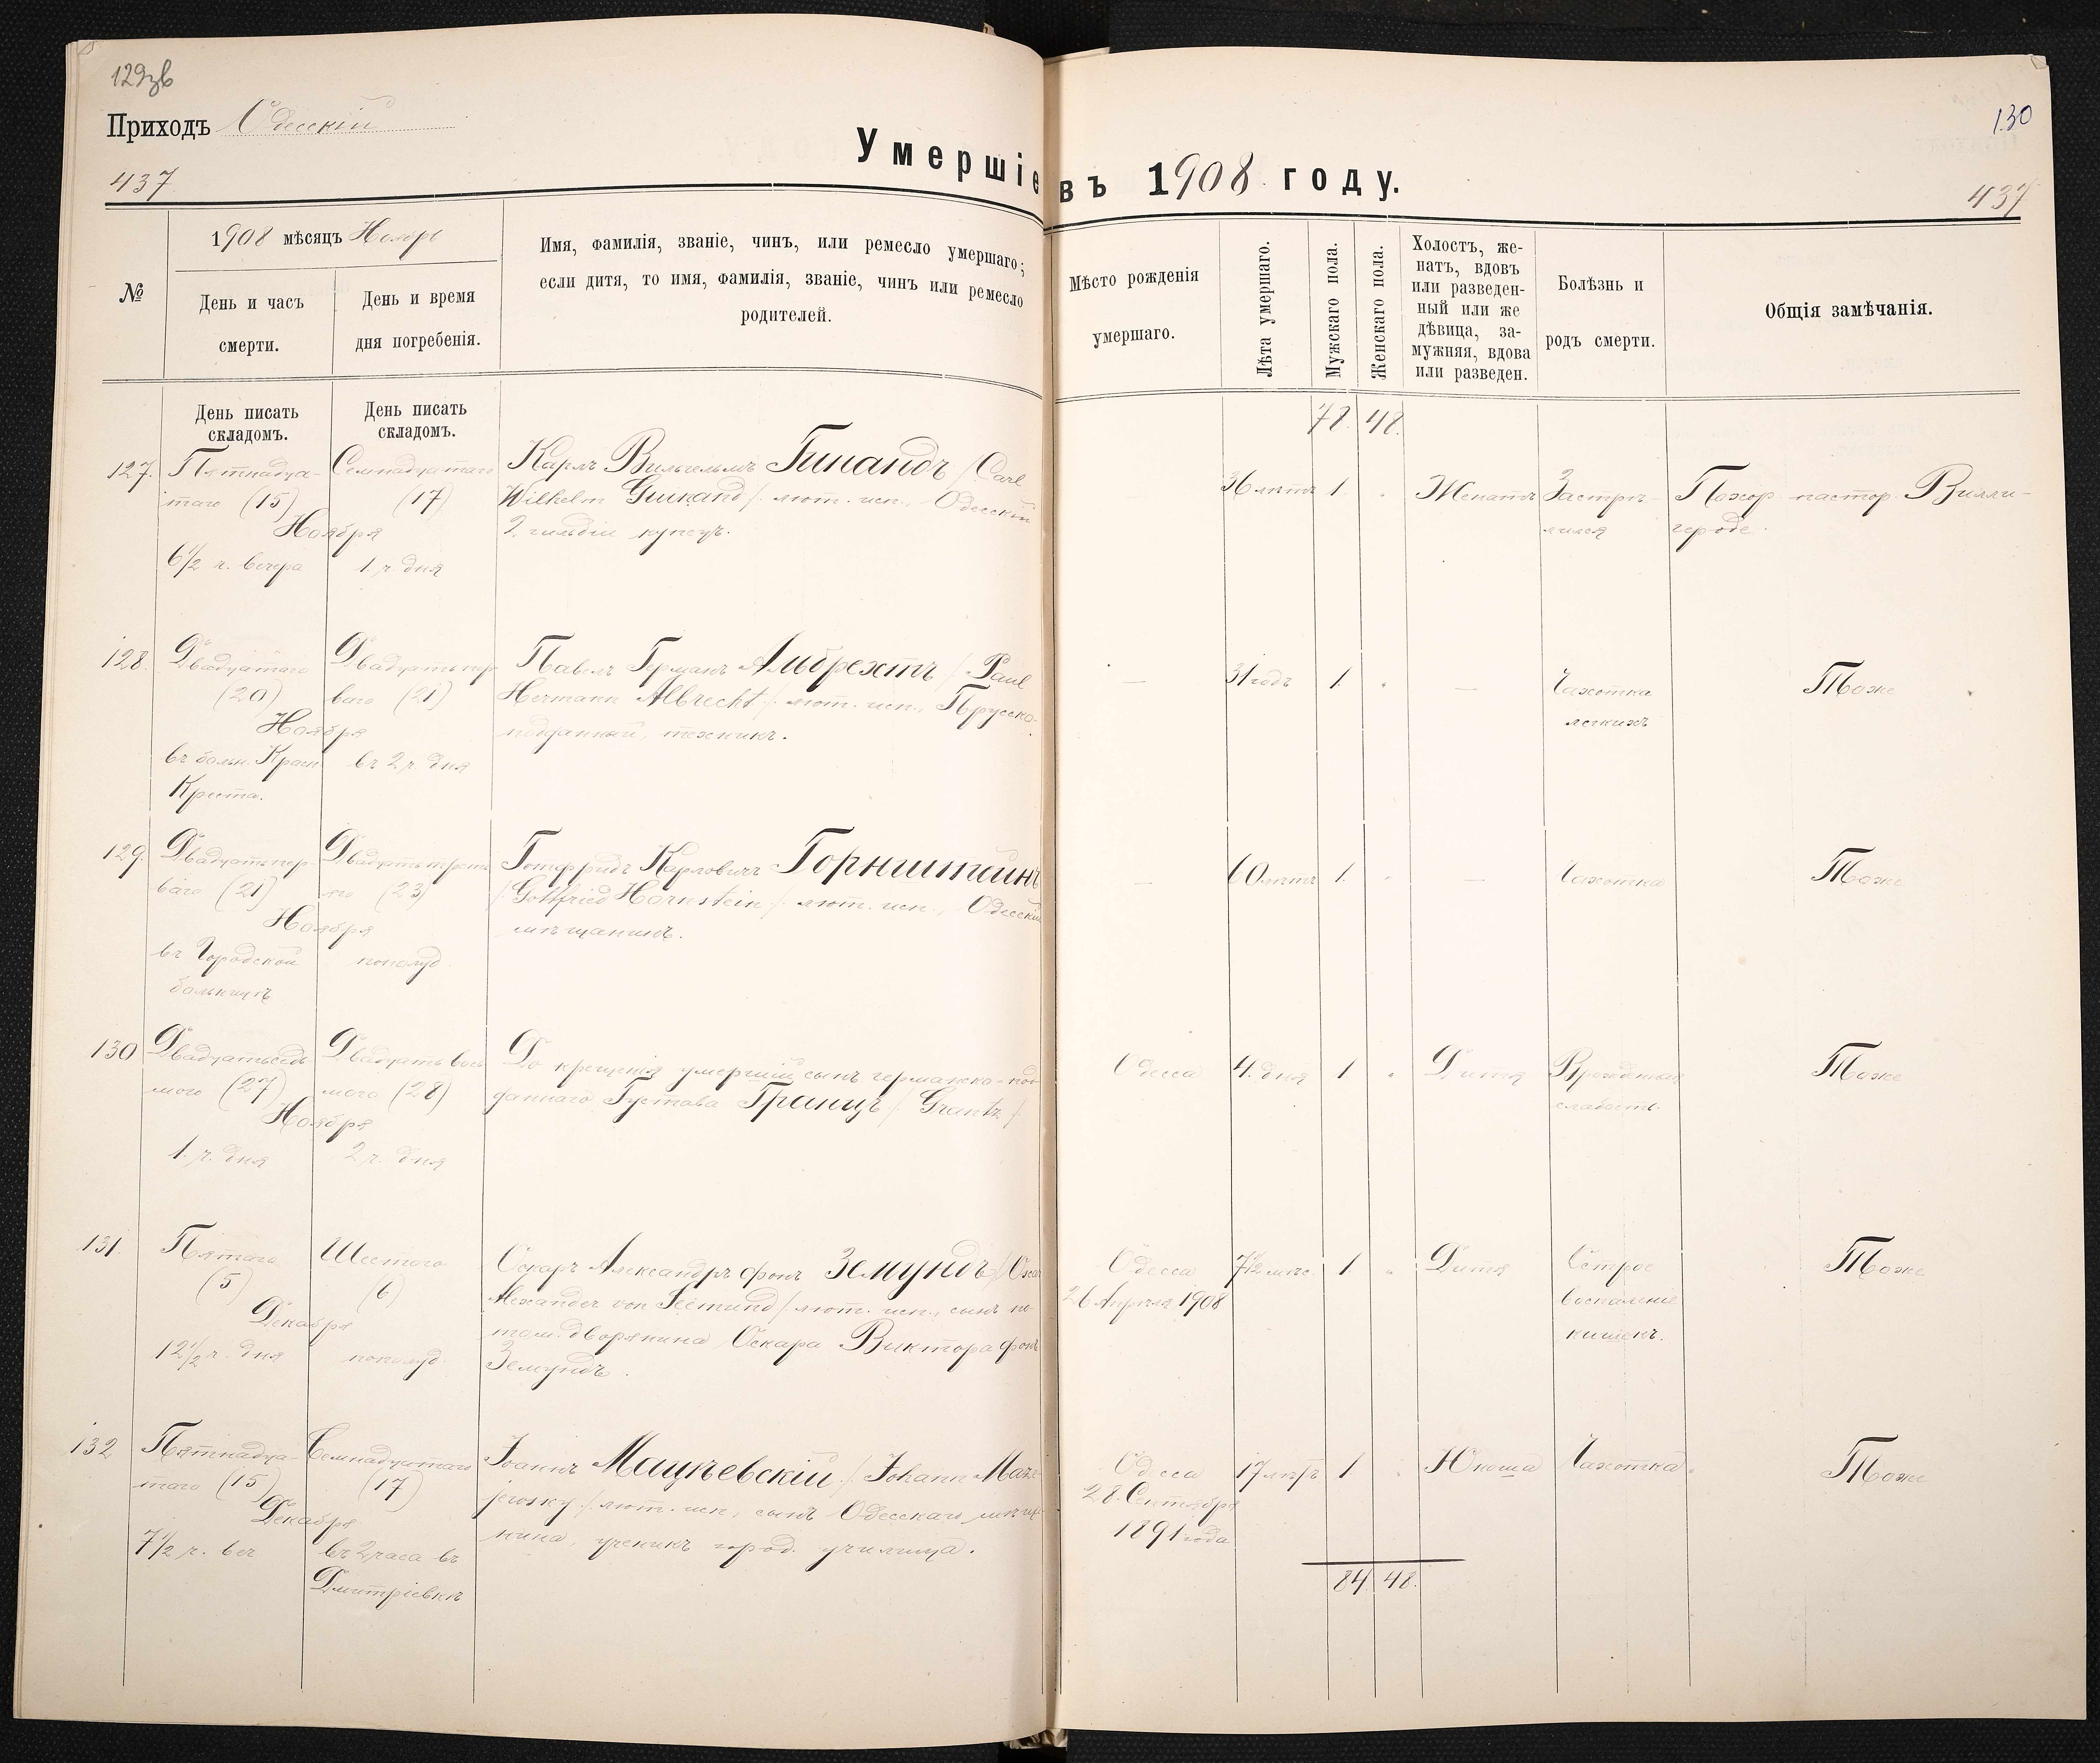 129зв
Приходъ Одесскій
437
Умершіе въ 1908 году.
130
437
№
1908 мѣсяцъ Ноябрь
День и часъ
смерти.
День и время
дня погребенія.
Имя, фамилія, званіе, чинъ, или ремесло умершаго;
если дитя, то имя, фамилія, званіе, чинъ или ремесло
родителей.
Мѣсто рожденія
умершаго.
Лѣта умершаго.
Мужскаго пола.
Женскаго пола.
Холостъ, же-
натъ, вдовъ
или разведен-
ный или же
дѣвица, за-
мужняя, вдова
или разведен.
Болѣзнь и
родъ смерти.
Общія замѣчанія.
День писать
складомъ.
День писать
складомъ.
78. 48.
127.
Пятнадца-
таго (15)
Ноября
6½ ч. вечера
Семнадцатаго
(17)
1 ч. дня
Карлъ Вильгельмъ Гинандъ /Carl
Wilhelm Guinand/. лют. исп., Одесскій
2 гильдіи купецъ.
—
36 лѣтъ
1
"
Женатъ
Застрѣ-
лился
Похор. пастор. Вилли-
героде.
128.
Двадцатаго
(20)
Ноября
въ больн. Красн
Креста.
Двадцать пер
ваго (21)
въ 2 ч. дня
Павелъ Германъ Альбрехтъ /. Paul
Hermann Albrecht/. лют. исп., Прусско-
подданный, техникъ.
—
31 годъ
1.
"
—
Чахотка
легкихъ
Тоже
129.
Двадцать пер-
ваго (21)
Ноября
въ Городской
больницѣ
Двадцать треть
яго (23)
пополуд.
Готфридъ Карловичъ Горнштейнъ
/Gottfried Hornstein/. лют. исп., Одесскій
мѣщанинъ.
—
60 лѣтъ
1.
"
—
Чахотка
Тоже
130
Двадцать седь
мого (27)
Ноября
1. ч. дня
Двадцать вось
маго (28)
2 ч. дня
До крещенія умершій сынъ германско-под
даннаго Густава Границъ /. Grantz/.
Одесса
4. дня
1
"
Дитя
Врожденная
слабость.
Тоже
131.
Пятаго
(5)
Декабря
12½ ч. дня
Шестого
(6)
пополуд.
Оскаръ Александръ фонъ Земундъ /Oscar
Alexander von Seemund/. лют. исп., сынъ по-
том. дворянина Оскара Виктора фонъ
Земундъ.
Одесса
26 Апрѣля 1908
7½ мѣс.
1
"
Дитя
Острое
воспаленіе
кишекъ.
Тоже
132
Пятнадца-
таго (15)
Декабря
7½ ч. веч
Семнадцатаго
(17)
въ 2 часа въ
Дмитріевкѣ
Іоаннъ Мацѣевскій /. Johann Maze-
jewsky/. лют. исп., сынъ Одесскаго мѣща-
нина, ученикъ город. училища.
Одесса
28. Сентября
1891 года
17 лѣтъ
1
"
Юноша
Чахотка.
Тоже
84 48.